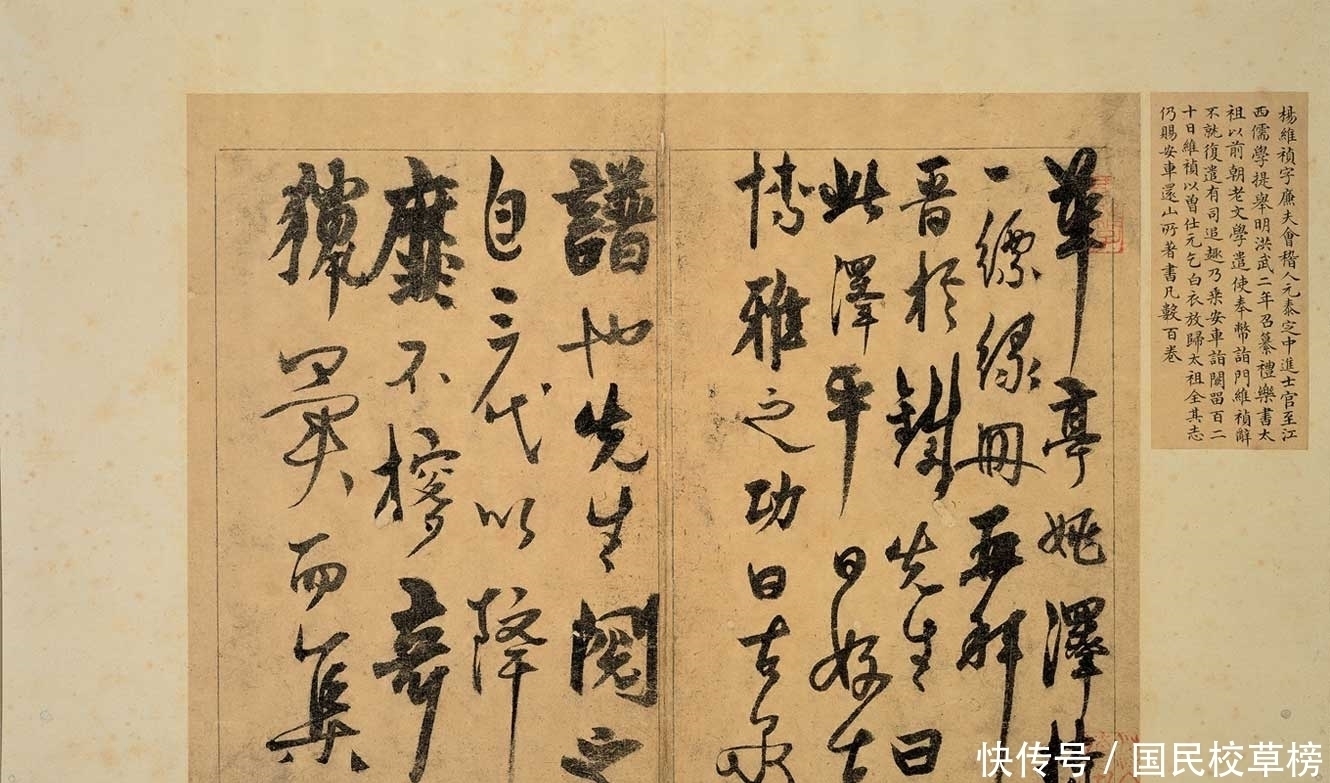 楊維禎字廉夫會稽人元泰定中進士官至江
西儒學提舉明洪武二年召纂禮樂書太
祖以前朝老文學遣使奉幣詣門維禎辭
不就復遣有司追趣乃乘安車詣闕留百二
十日維禎以曾仕元乞白衣放歸太祖全其志
仍賜安車還山所著書凡數百卷
華亭姚澤
一縹緑冊再拜
晋於鐵先生曰
此澤平日好古
博雅之功曰古泉
譜也先生閱之
自三代以降
靡不奇
獵異而集
快传号 / 国民校草榜